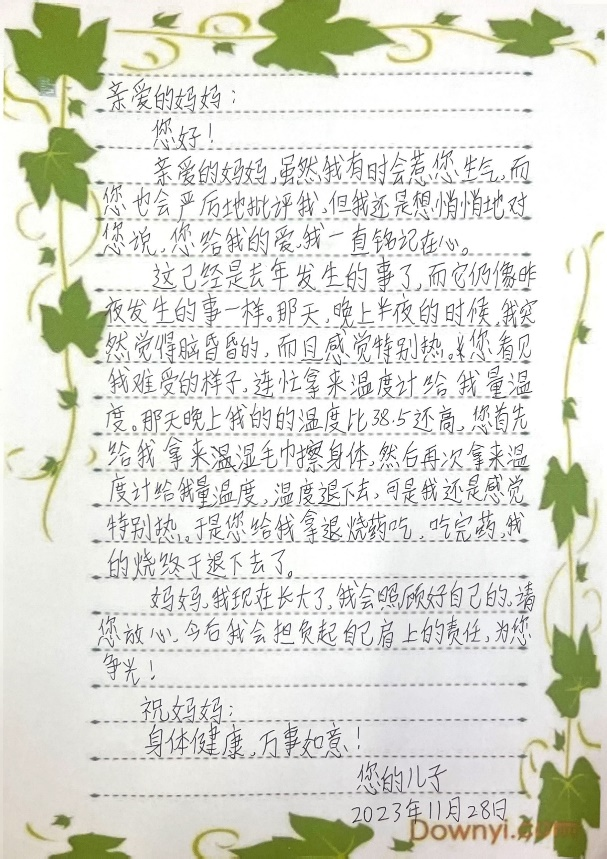 亲爱的妈妈：
您好！
亲爱的妈妈,虽然我有时会惹您生气,而
您也会严厉地批评我,但我还是想悄悄地对
您说,您给我的爱,我一直铭记在心。
这已经是去年发生的事了,而它仍像昨
夜发生的事一样。那天,晚上半夜的时候,我突
然觉得脑昏昏的,而且感觉特别热。您看见
我难受的样子,连忙拿来温度计给我量温
度。那天晚上我的的温度比38.5还高,您首先
给我拿来温湿毛巾擦身体,然后再次拿来温
度计给我量温度,温度退下去,可是我还是感觉
特别热。于是您给我拿退烧药吃,吃完药,我
的烧终于退下去了。
妈妈,我现在长大了,我会照顾好自己的,请
您放心,今后我会担负起自己肩上的责任,为您
争光！
祝妈妈：
身体健康,万事如意！
您的儿子
2023年11月28日
Downyi.com